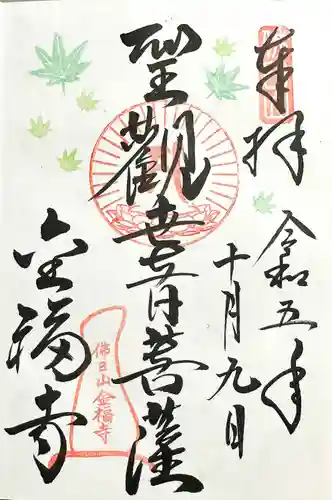 奉拝
令和五年
十月九日
聖觀世音菩薩
金福寺
佛日山金福寺